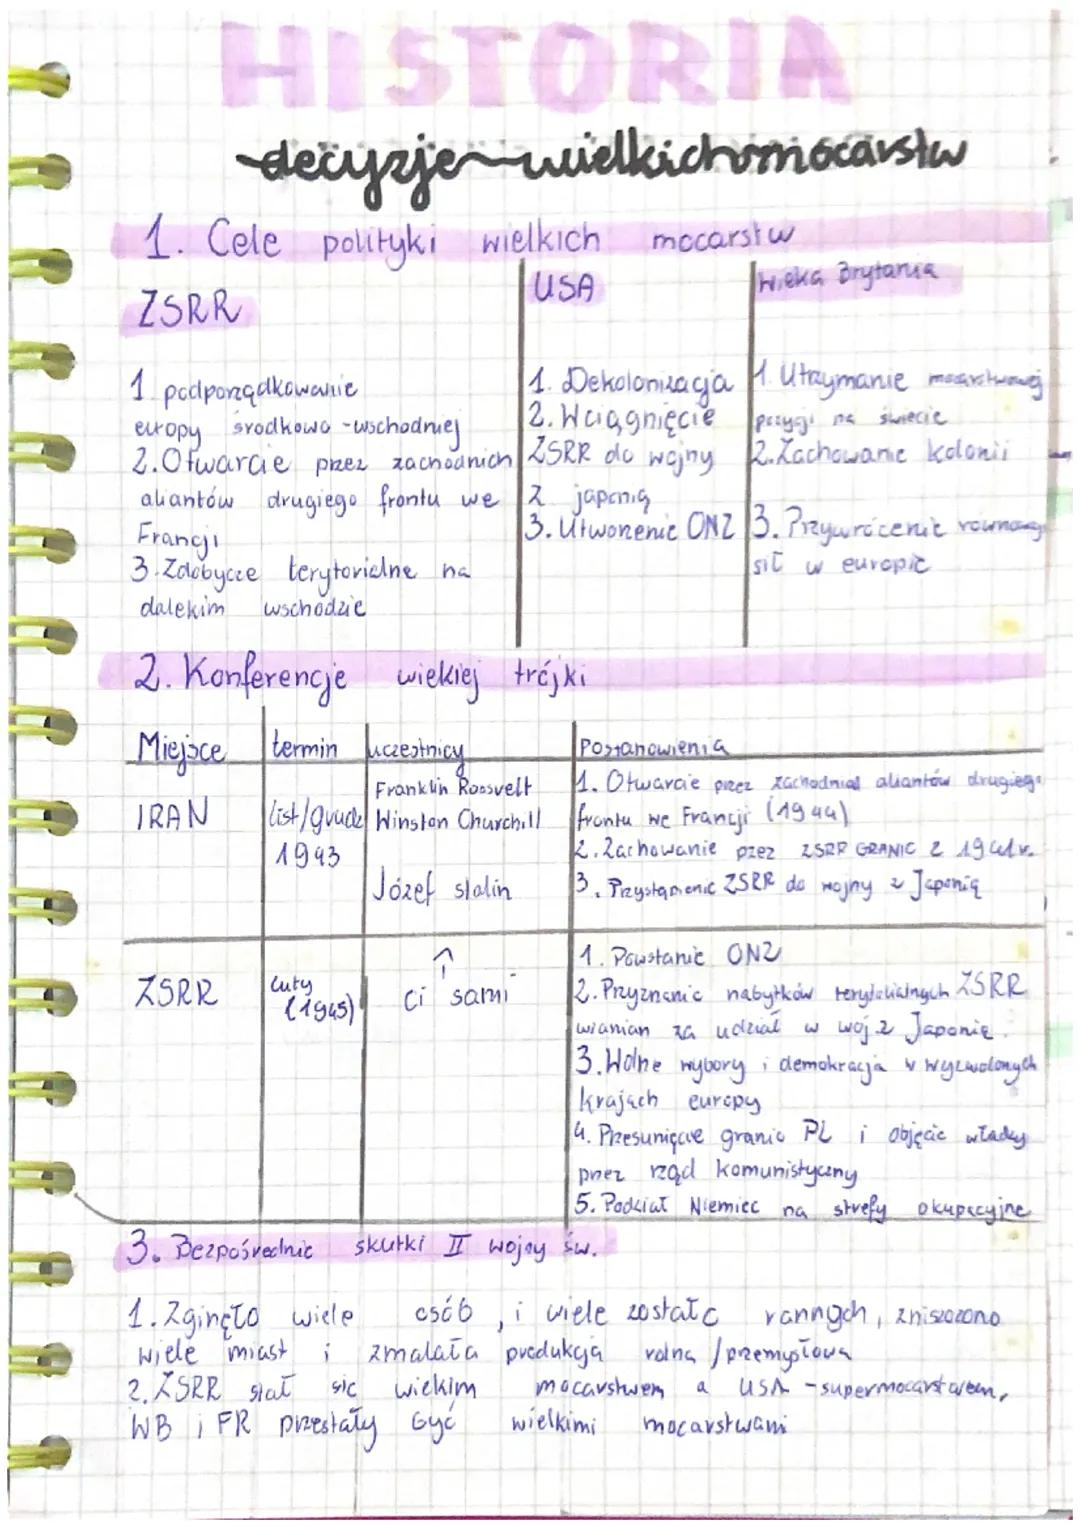 HISTORIA
decyzje wielkich mocarstw
1. Cele polityki wielkich mocarstw
ZSRR
1. podporządkowanie
europy środkowo-wschodniej
2. Otwarcie przez zachodnich
aliantów drugiego frontu we
Francji
3. Zdobycze terytorialne na
dalekim wschodzie
USA
1. Dekolonizacja
2. Wciągnięcie
ZSRR do wojny
z japonią
3. Utworzenie ONZ
Wieka Brytania
1. Utrzymanie mocarstwowej
pozycji na świecie
2. Zachowanie kolonii
3. Przywrócenie równowagi
sił w europie
2. Konferencje wiekiej trójki
Miejsce termin uczestnicy Postanowienia
IRAN
list/grudz
1943
Franklin Roosvelt
Winston Churchill
Józef stalin
1. Otwarcie przez zachodnich aliantów drugiego
frontu we Francji (1944)
2. Zachowanie przez ZSRR GRANIC z 1941r.
3. Przystąpienie ZSRR do wojny z Japonią
ZSRR
luty
(1945)
↑
ci sami
1. Powstanie ONZ
2. Przyznanie nabytków ZSRR
wianian za udział w woj. z Japonię.
3. Wolne wybory i demokracja w wyzwolonych
krajach europy
4. Przesunięcie granic PL i objęcie władzy
przez rząd komunistyczny
5. Podział Niemiec na strefy okupacyjne
3. Bezpośrednie skutki II wojny św.
1. Zginęło wiele osób, i wiele zostało rannych, zniszczono
wiele miast i zmalała produkcja rolna/przemysłowa
2. ZSRR stał się wiekim mocarstwem a USA - supermocarstwem,
WB i FR przestały być wielkimi mocarstwami